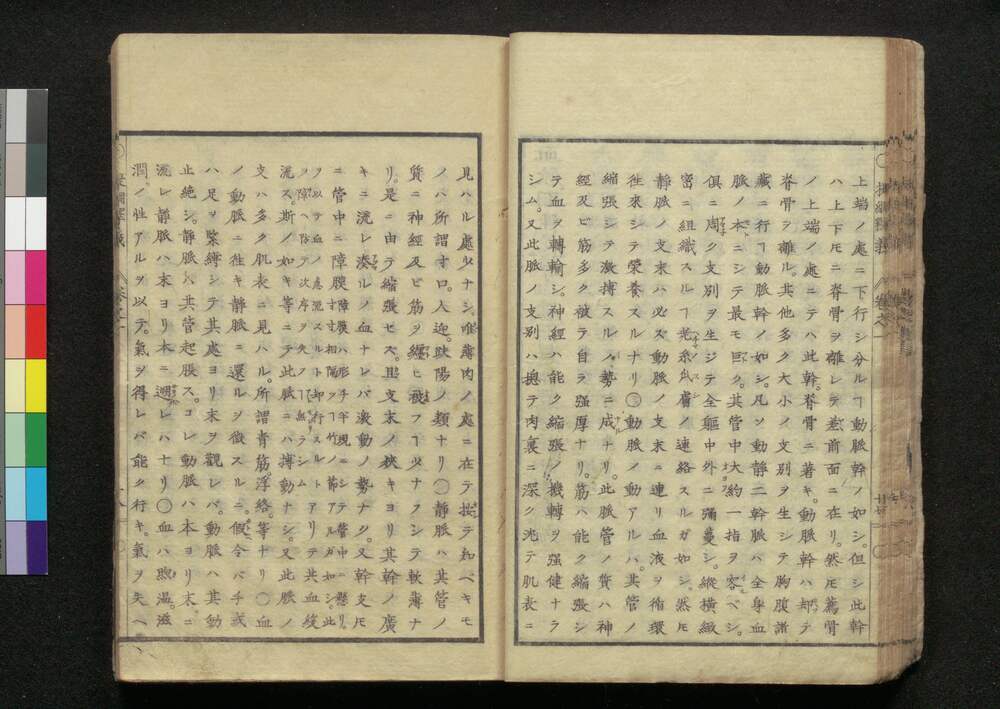 上端ノ處ニ下行シ分ルヿ動脈幹ノ如シ。但シ此幹
ハ上下モニ脊骨ヲ離レテ差前面ニ在リ。然モ薦骨
ノ上端ノ處ニテハ此幹。脊骨ニ著キ。動脈幹ハ却テ
脊骨ヲ離ル。其他多ク大小ノ支別ヲ生シテ胸腹諸
藏ニ行ヿ動脈幹ノ如シ。凡ソ動靜二幹脈ハ全身血
脈ノ本ニシテ最モ巨ク。其管中大約一指ヲ容ベシ。
俱ニ周ク支別ヲ生ジテ全軀中外ニ彌蔓シ。縱橫緻
密ニ組織スルヿ
膚ノ連絡スルガ如シ。然モ
靜脈ノ支末ハ必ス動脈ノ支末ニ連リ血液ヲ循環
徃來シテ榮養スルナリ〇動脈ノ動アルハ。其管ノ
縮張シテ激搏スルノ勢ニ成ナリ。此脈管ノ質ハ神
經及ビ筋多ク被ラ自ラ强厚ナリ。筋ハ能ク縮張シ
テ血ヲ轉輸シ。神經ハ能ク縮張ノ機轉ヲ强健ナラ
シム。又此脈ノ支別ハ揔テ肉裏ニ深ク沈テ肌表ニ
見ハル處少ナシ。唯薄肉ノ處ニ在テ拱テ知ベキモ
ノハ所謂寸口。人迎。趺陽ノ類ナリ〇靜脈ハ其管ノ
質ニ神經及ビ筋ヲ纒ヒ被フヿ少ナフシテ軟薄ナ
リ。是ニ由テ縮張セズ。且支末ノ狹キヨリ其幹ノ廣
キニ流レ湊ルノ血ナレバ激動ノ勢ナク。又幹支モ
ニ管中ニ障膜障膜ハ形チ半規ニシテ管中ニ懸リ。
寸寸相隔ツヿ竹ノ節アルガ如シ。此
ヲ以テ血ノ急流スルト却行スルト
ヲ障ヘ防テ次序ヲ失ヿ無ラシム
アリテ共血緩
流ス斯ノ如キ等ニテ此脈ニハ搏動ナシ。又此脈ノ
支ハ多ク肌表ニ見ハル。所謂靑筋浮絡。等ナリ〇血
ノ動脈ニ徃キ靜脈ニ還ルヲ徵スルニ。假令バ手或
ハ足ヲ緊縛シテ其處ヨリ末ヲ觀レバ。動脈ハ其動
止絕シ。靜脈ハ其管起脹ス。コレ動脈ハ本ヨリ末ニ
流レ靜脈ハ末ヨリ本ニ遡レハナリ〇血ハ煦温。滋
潤ノ性アルヲ以テ。氣ヲ得レバ能ク行キ。氣ヲ失ヘ